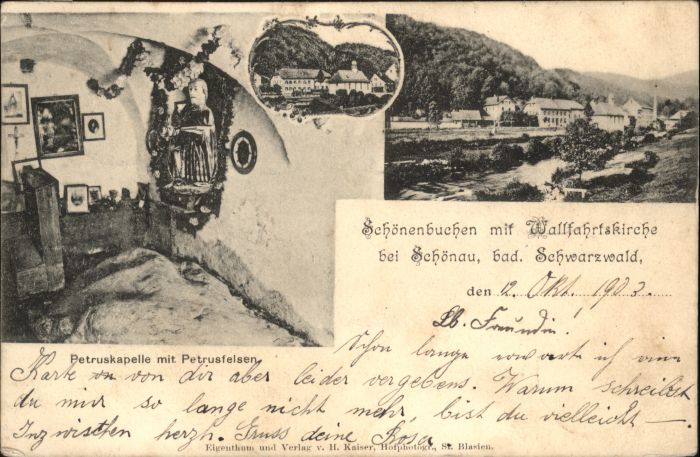 Schönenbuchen mit Wallfahrtskirche
bei Schönau, bad. Schwarzwald,
den 12. Okt. 1903.
Lb. Freundin!
Petruskapelle mit Petrusfelsen
Schon lange erwarte ich eine
Karte von dir aber leider vergebens. Warum schreibst
du mir so lange nicht mehr, bist du vielleicht —
Inzwischen herzh. Gruss deine Rosa
Eigenthum und Verlag v. H. Kaiser, Hofphotogr., St. Blasien.